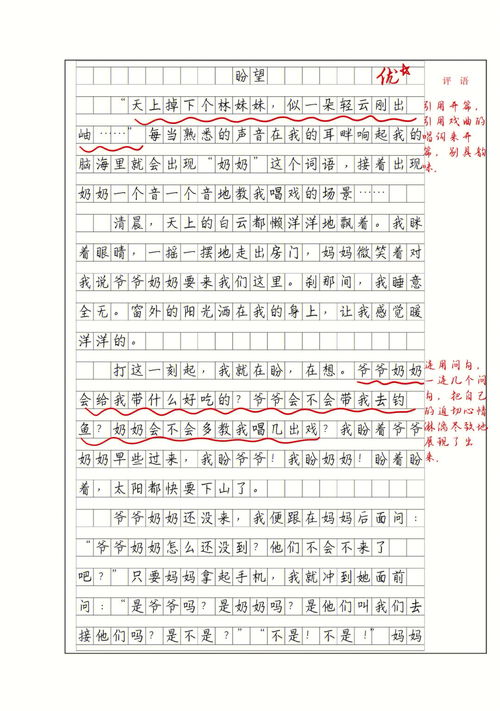 盼望
优
评 语
“天上掉下个林妹妹，似一朵轻云刚出
岫……”每当熟悉的声音在我的耳畔响起我的
脑海里就会出现“奶奶”这个词语，接着出现
奶奶一个音一个音地教我唱戏的场景……
引用开篇，
引用戏曲的
唱词来开
篇，别具韵
味。
清晨，天上的白云都懒洋洋地飘着。我眯
着眼睛，一摇一摆地走出房门，妈妈微笑着对
我说爷爷奶奶要来我们这里。刹那间，我睡意
全无。窗外的阳光洒在我的身上，让我感觉暖
洋洋的。
打这一刻起，我就在盼，在想。爷爷奶奶
会给我带什么好吃的？爷爷会不会带我去钓
鱼？奶奶会不会多教我唱几出戏？我盼着爷爷
奶奶早些过来，我盼爷爷！我盼奶奶！盼着盼
着，太阳都快要下山了。
连用问句，
一连几个问
句，把自己
的迫切心情
淋漓尽致地
展现了出
来。
爷爷奶奶还没来，我便跟在妈妈后面问：
“爷爷奶奶怎么还没到？他们不会不来了
吧？”只要妈妈拿起手机，我就冲到她面前
问：“是爷爷吗？是奶奶吗？是他们叫我们去
接他们吗？是不是？”“不是！不是！”妈妈